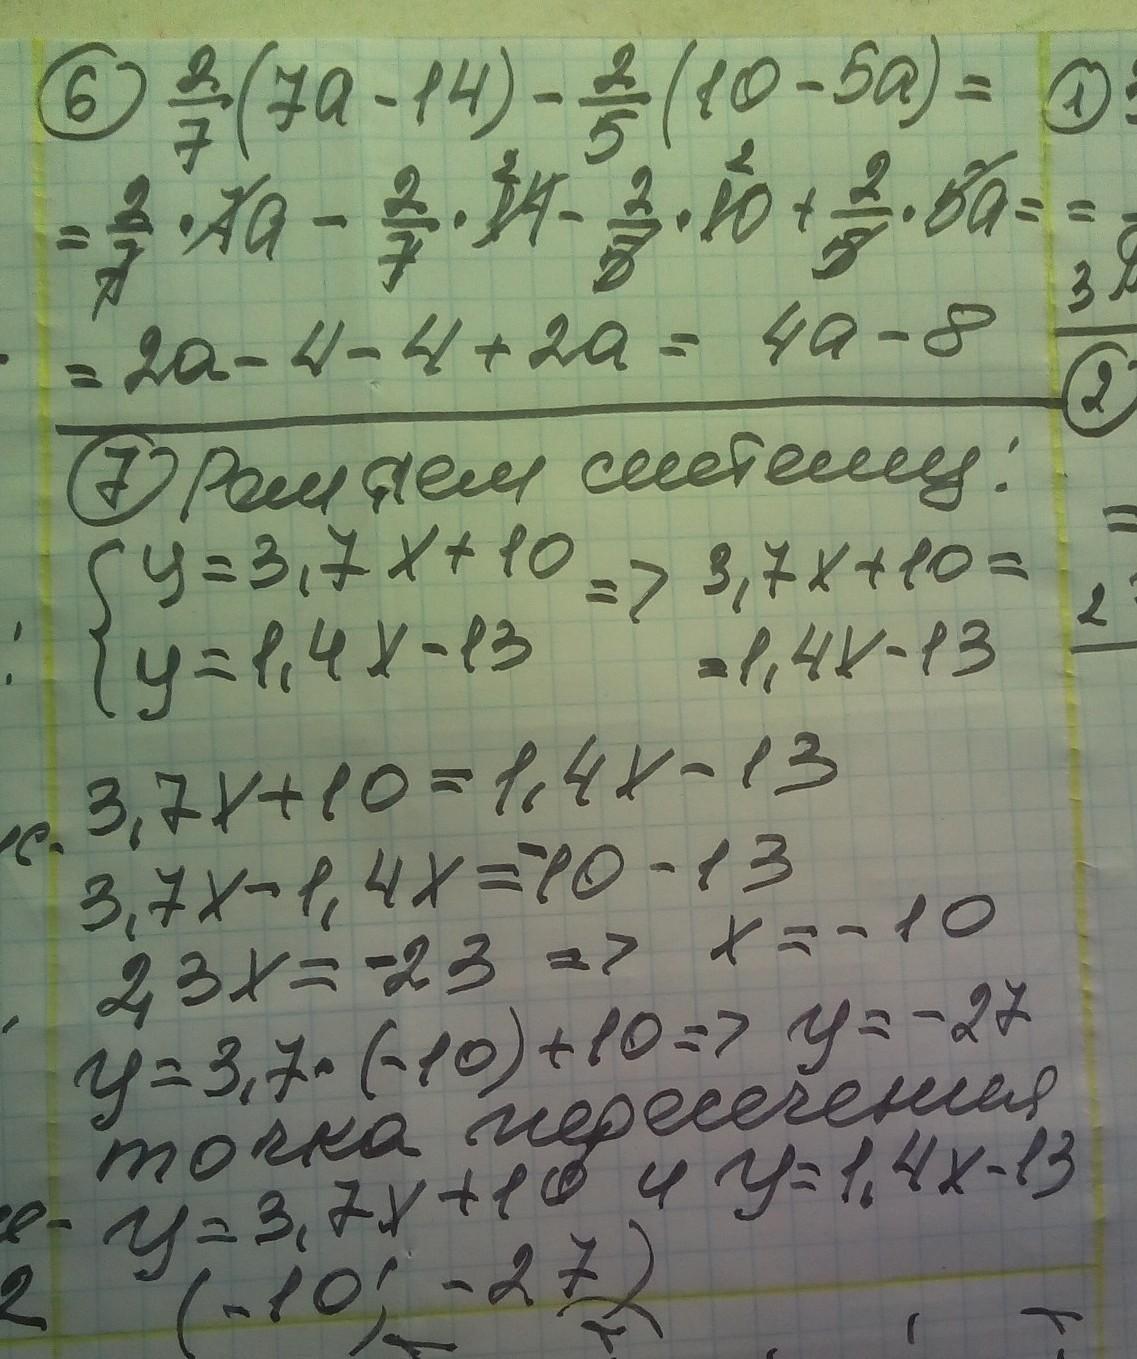 6 2/7 (7a - 14) - 2/5 (10 - 5a) =
= 2/7 · 7a - 2/7 · 14 - 2/5 · 10 + 2/5 · 5a =
= 2a - 4 - 4 + 2a = 4a - 8
7 Решаем систему:
{ y = 3,7x + 10 => 3,7x + 10 =
y = 1,4x - 13 = 1,4x - 13
3,7x + 10 = 1,4x - 13
3,7x - 1,4x = -10 - 13
2,3x = -23 => x = -10
y = 3,7 · (-10) + 10 => y = -27
точка пересечения
y = 3,7x + 10 и y = 1,4x - 13
(-10; -27)
1
=
3
2
=
2